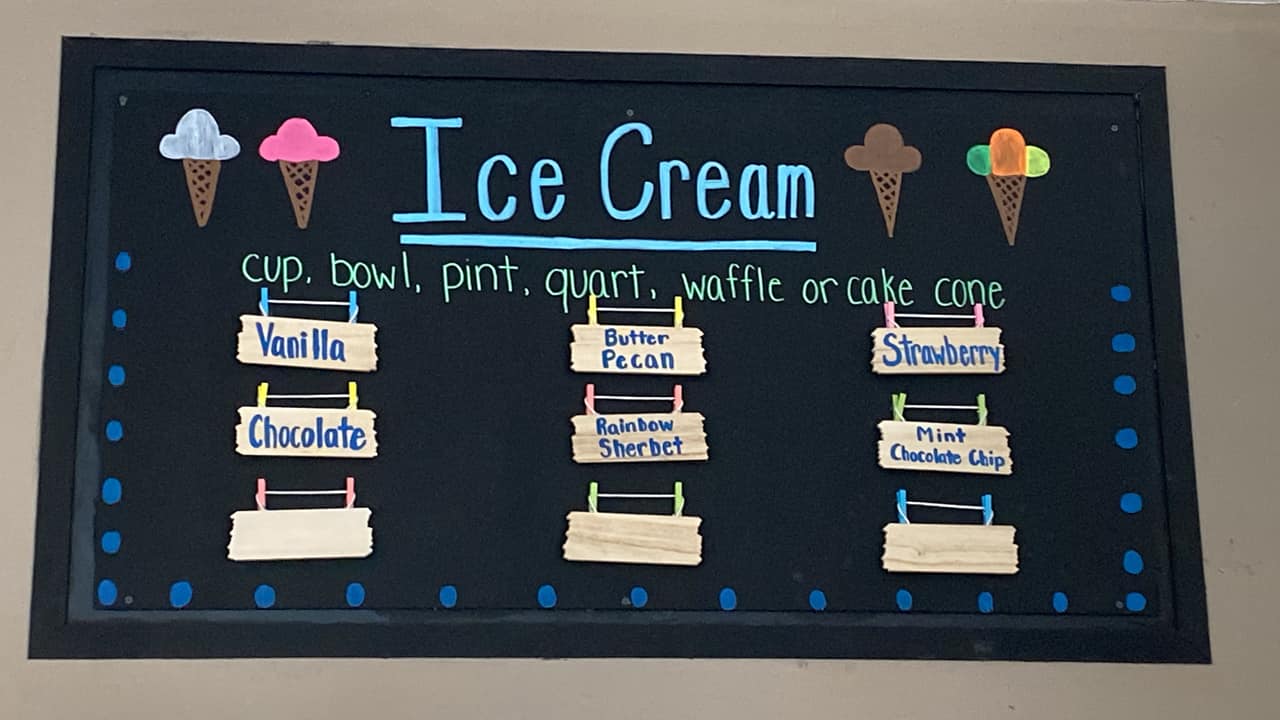 Ice Cream
cup, bowl, pint, quart, waffle or cake cone
Vanilla
Butter
Pecan
Strawberry
Chocolate
Rainbow
Sherbet
Mint
Chocolate Chip